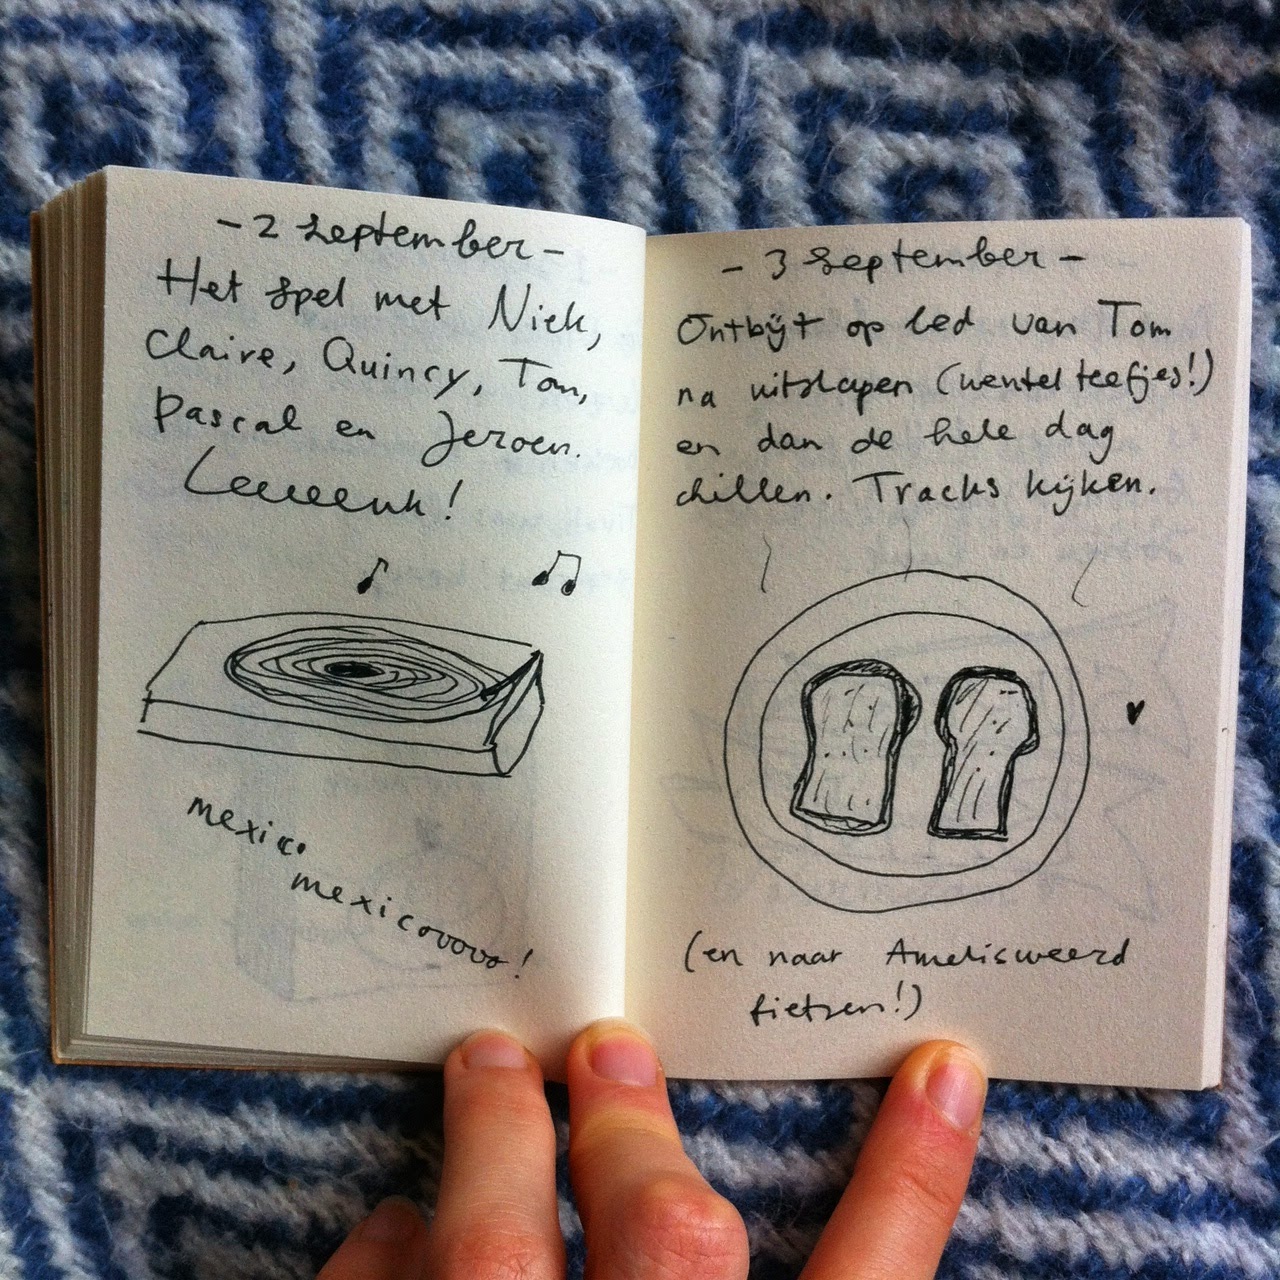 - 2 september -
Het spel met Niek,
Claire, Quincy, Tom,
Pascal en Jeroen.
Leeeeuk!
mexico
mexicoooo!
- 3 september -
Ontbijt op bed van Tom
na uitslapen (wentelteefjes!)
en dan de hele dag
chillen. Tracks kijken.
(en naar Amelisweerd
fietsen!)